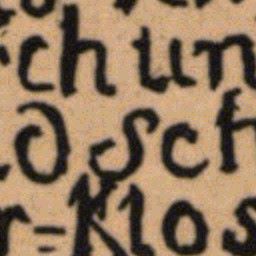 ch un
d Sch
r=Klos